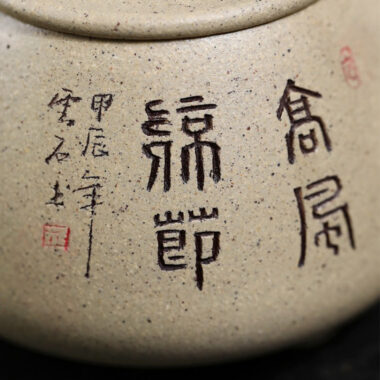 高風
亮節
甲辰年
雲石书